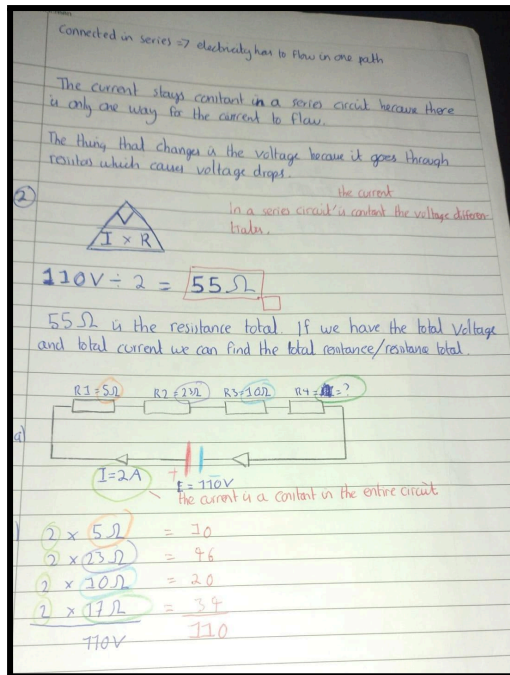 Connected in series => electricity has to flow in one path
The current stays constant in a series circuit because there
is only one way for the current to flow.
The thing that changes is the voltage because it goes through
which causes voltage drops.
the current
In a series circuit is constant the voltage differen-
tiates.
2
V
I x R
110V ÷ 2 = 55Ω
55Ω is the resistance total. If we have the total voltage
and total current we can find the total resistance/resistance total.
R1=5Ω R2=23Ω R3=10Ω R4= =?
a)
I=2A + E=110V
the current is a constant in the entire circuit
2 x 5Ω = 10
2 x 23Ω = 46
2 x 10Ω = 20
2 x 17Ω = 34
110V 110